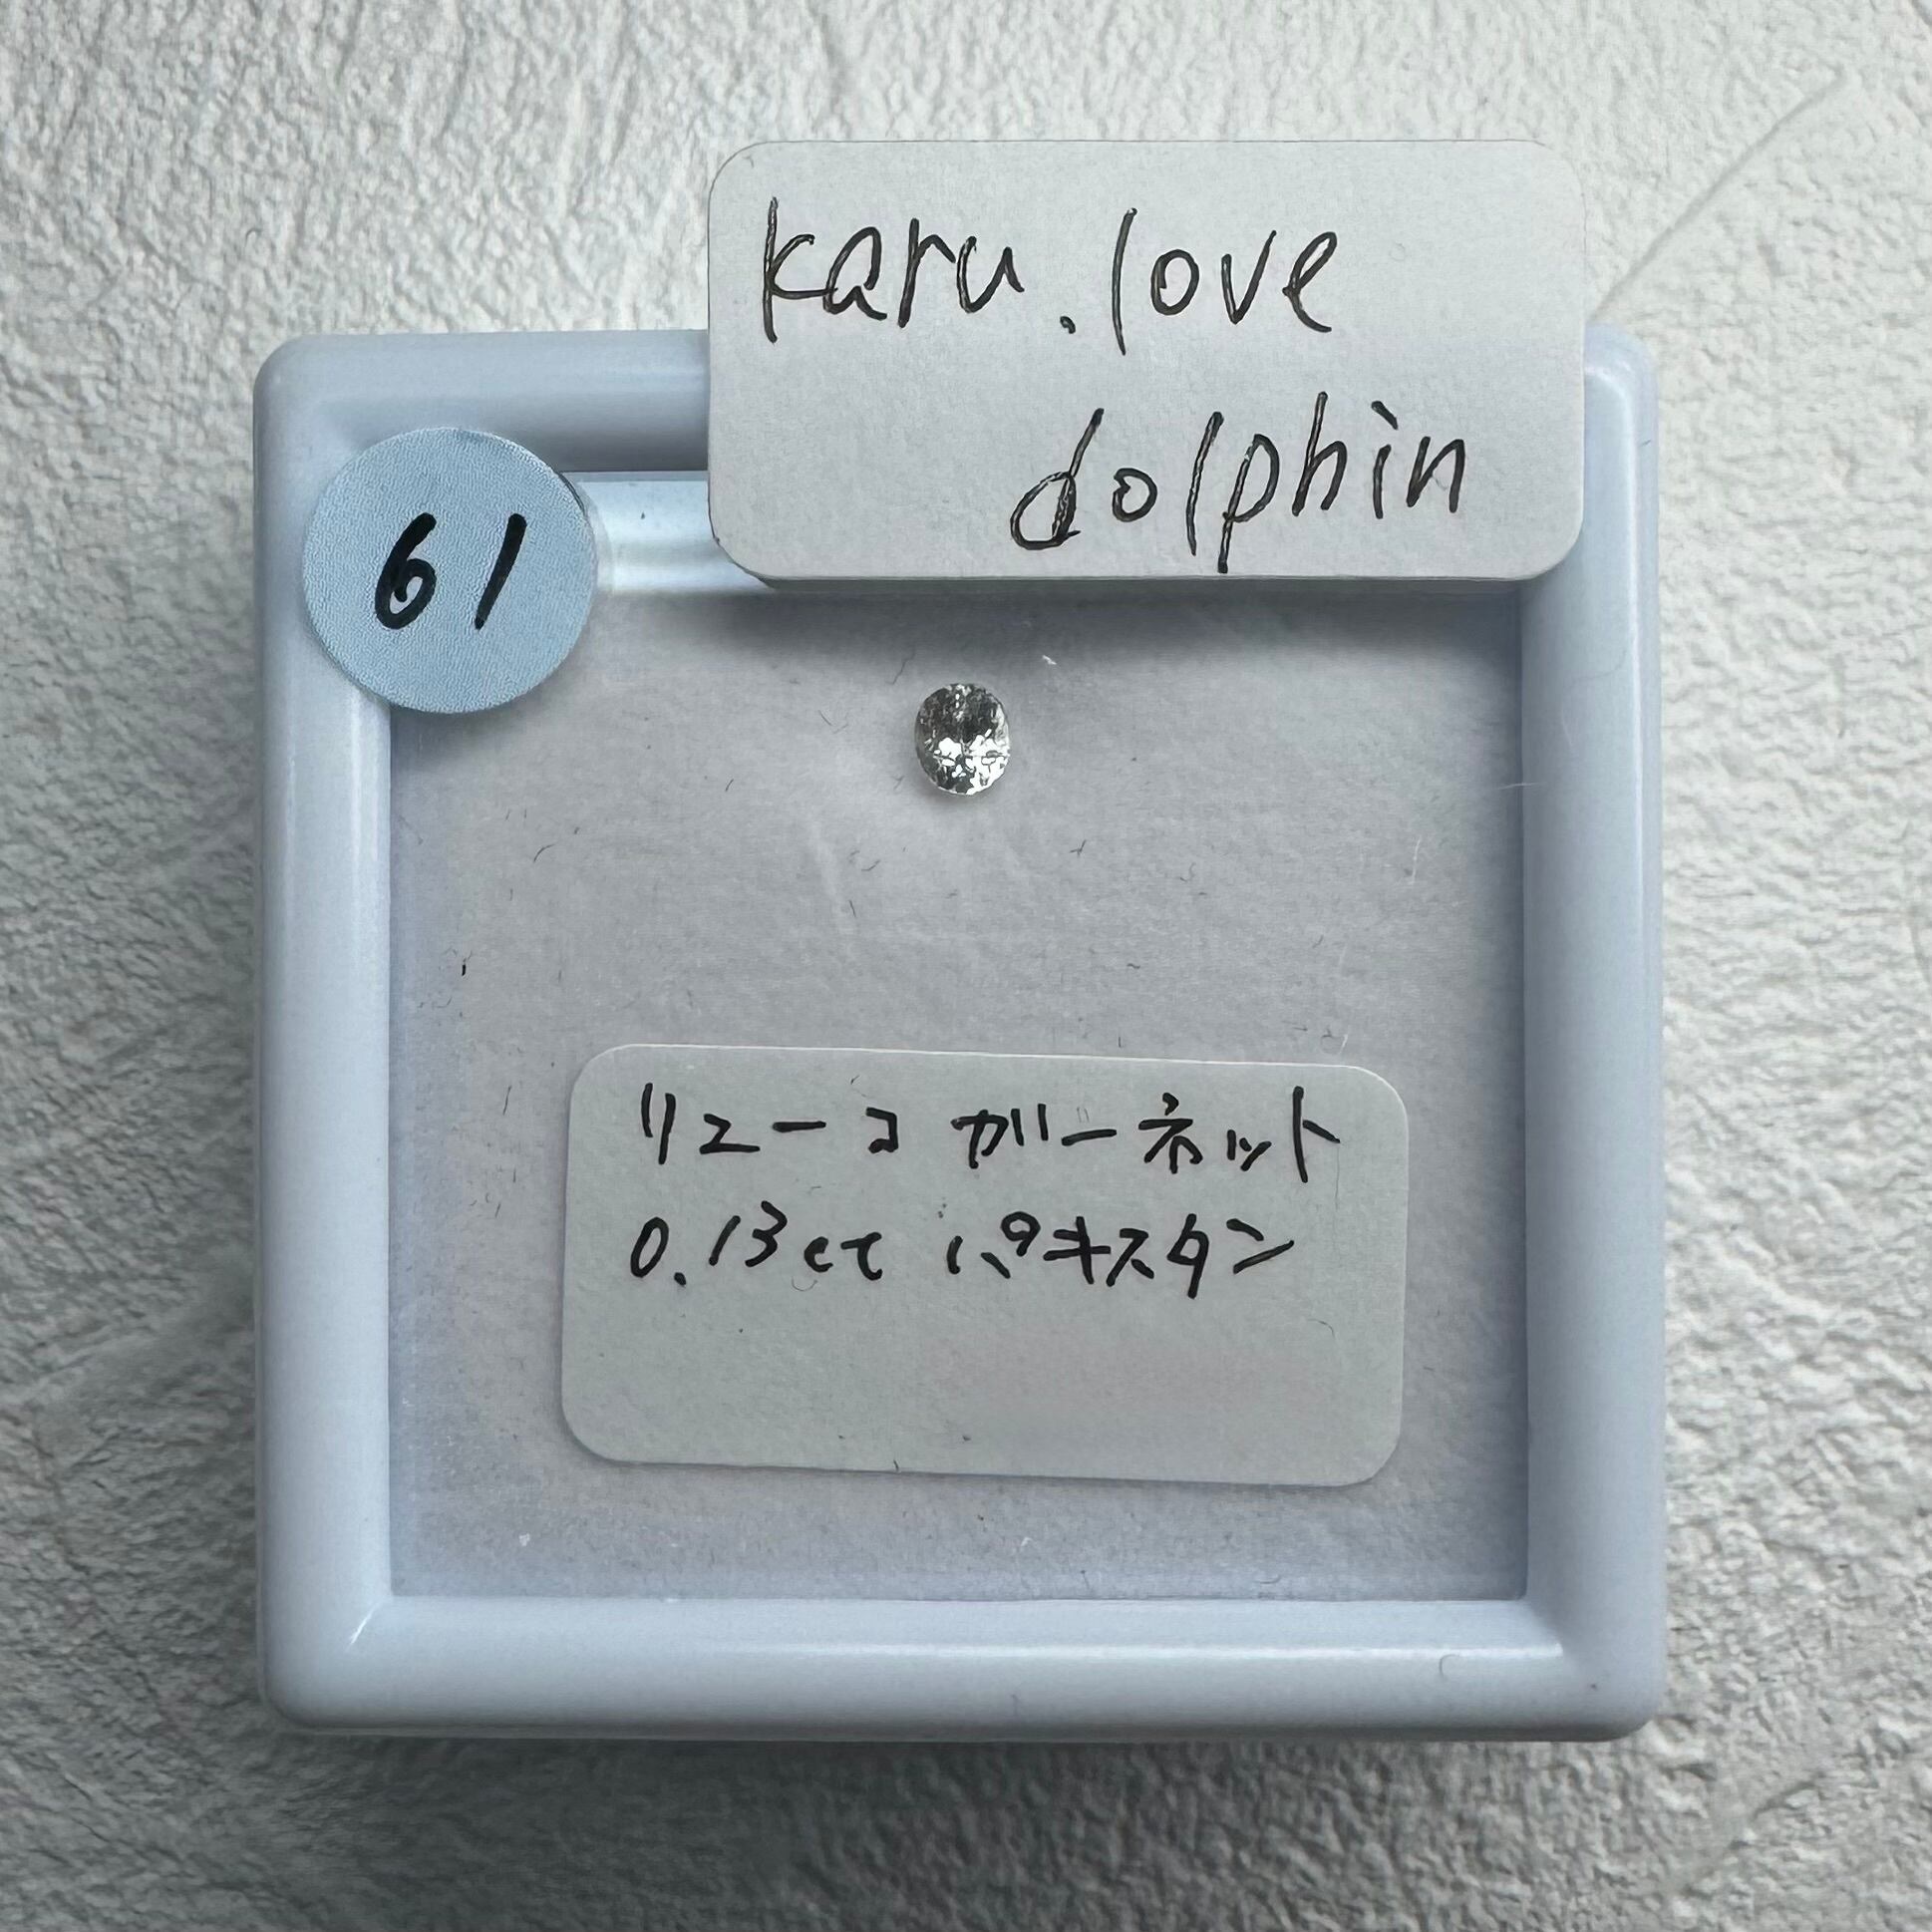 karu.love
dolphin
61
リューコガーネット
0.13ct パキスタン